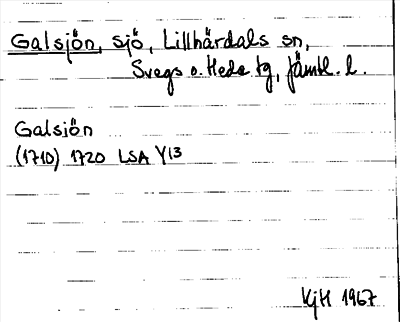 Galsjön, sjö, Lillhärdals sn,
Svegs o. Hede tg, Jämtl. l.
Galsjön
(1710) 1720 LSA Y13
KjH 1967